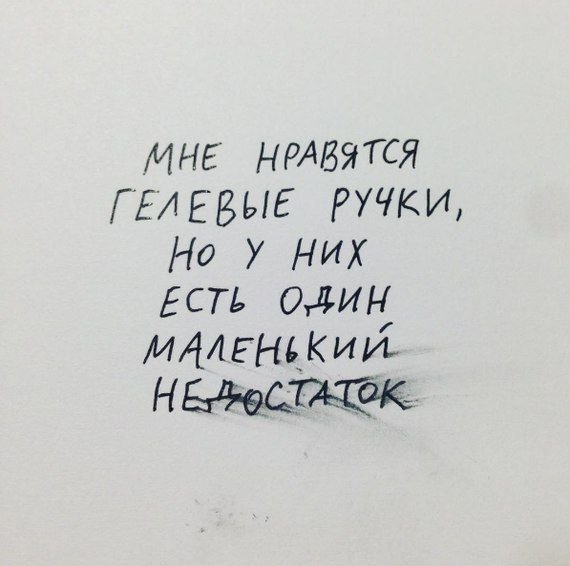 МНЕ НРАВЯТСЯ
ГЕЛЕВЫЕ РУЧКИ,
НО У НИХ
ЕСТЬ ОДИН
МАЛЕНЬКИЙ
НЕДОСТАТОК